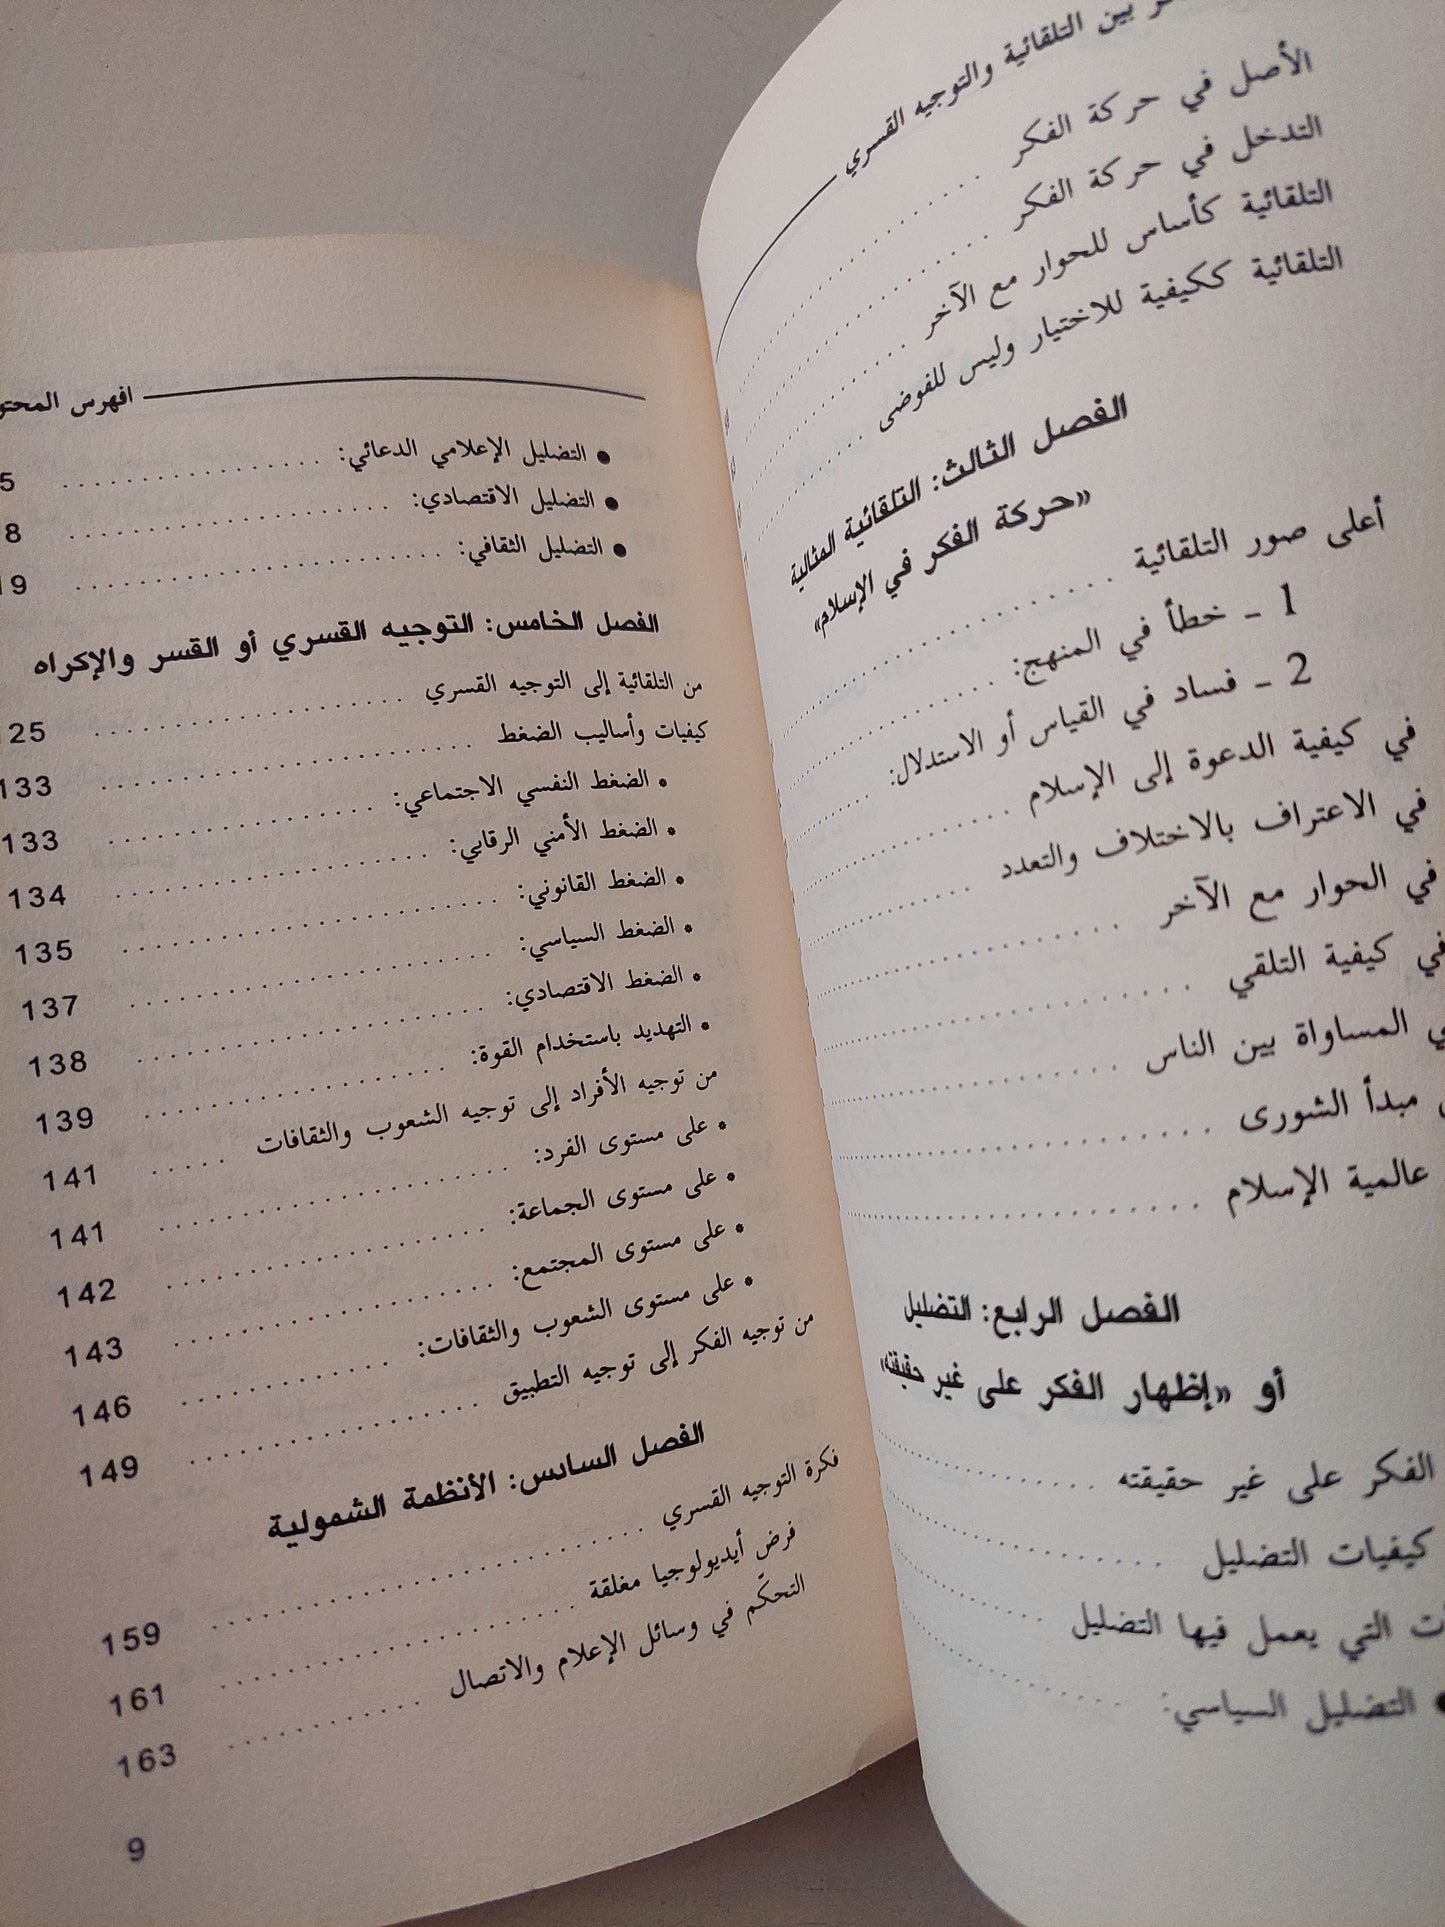 بين التلقائية والتوجيه القسري
الأصل في حركة الفكر
التدخل في حركة الفكر
التلقائية كأساس للحوار مع الآخر
التلقائية ككيفية للاختيار وليس للفوضى
الفصل الثالث: التلقائية المثالية
«حركة الفكر في الإسلام»
أعلى صور التلقائية
1 ـ خطأ في المنهج:
2 ـ فساد في القياس أو الاستدلال:
في كيفية الدعوة إلى الإسلام
في الاعتراف بالاختلاف والتعدد
في الحوار مع الآخر
في كيفية التلقي
المساواة بين الناس
مبدأ الشورى
عالمية الإسلام
الفصل الرابع: التضليل
أو «إظهار الفكر على غير حقيقته»
الفكر على غير حقيقته
كيفيات التضليل
التي يعمل فيها التضليل
● التضليل السياسي:
افهرس
● التضليل الإعلامي الدعائي: 5
● التضليل الاقتصادي: 8
● التضليل الثقافي: 19
الفصل الخامس: التوجيه القسري أو القسر والإكراه
من التلقائية إلى التوجيه القسري 125
كيفيات وأساليب الضغط 133
* الضغط النفسي الاجتماعي: 133
* الضغط الأمني الرقابي: 134
* الضغط القانوني: 135
* الضغط السياسي: 137
* الضغط الاقتصادي: 138
* التهديد باستخدام القوة: 139
من توجيه الأفراد إلى توجيه الشعوب والثقافات 141
* على مستوى الفرد: 141
* على مستوى الجماعة: 142
* على مستوى المجتمع: 143
* على مستوى الشعوب والثقافات: 146
من توجيه الفكر إلى توجيه التطبيق 149
الفصل السادس: الأنظمة الشمولية
فكرة التوجيه القسري 159
فرض أيديولوجيا مغلقة 161
التحكّم في وسائل الإعلام والاتصال 163
9